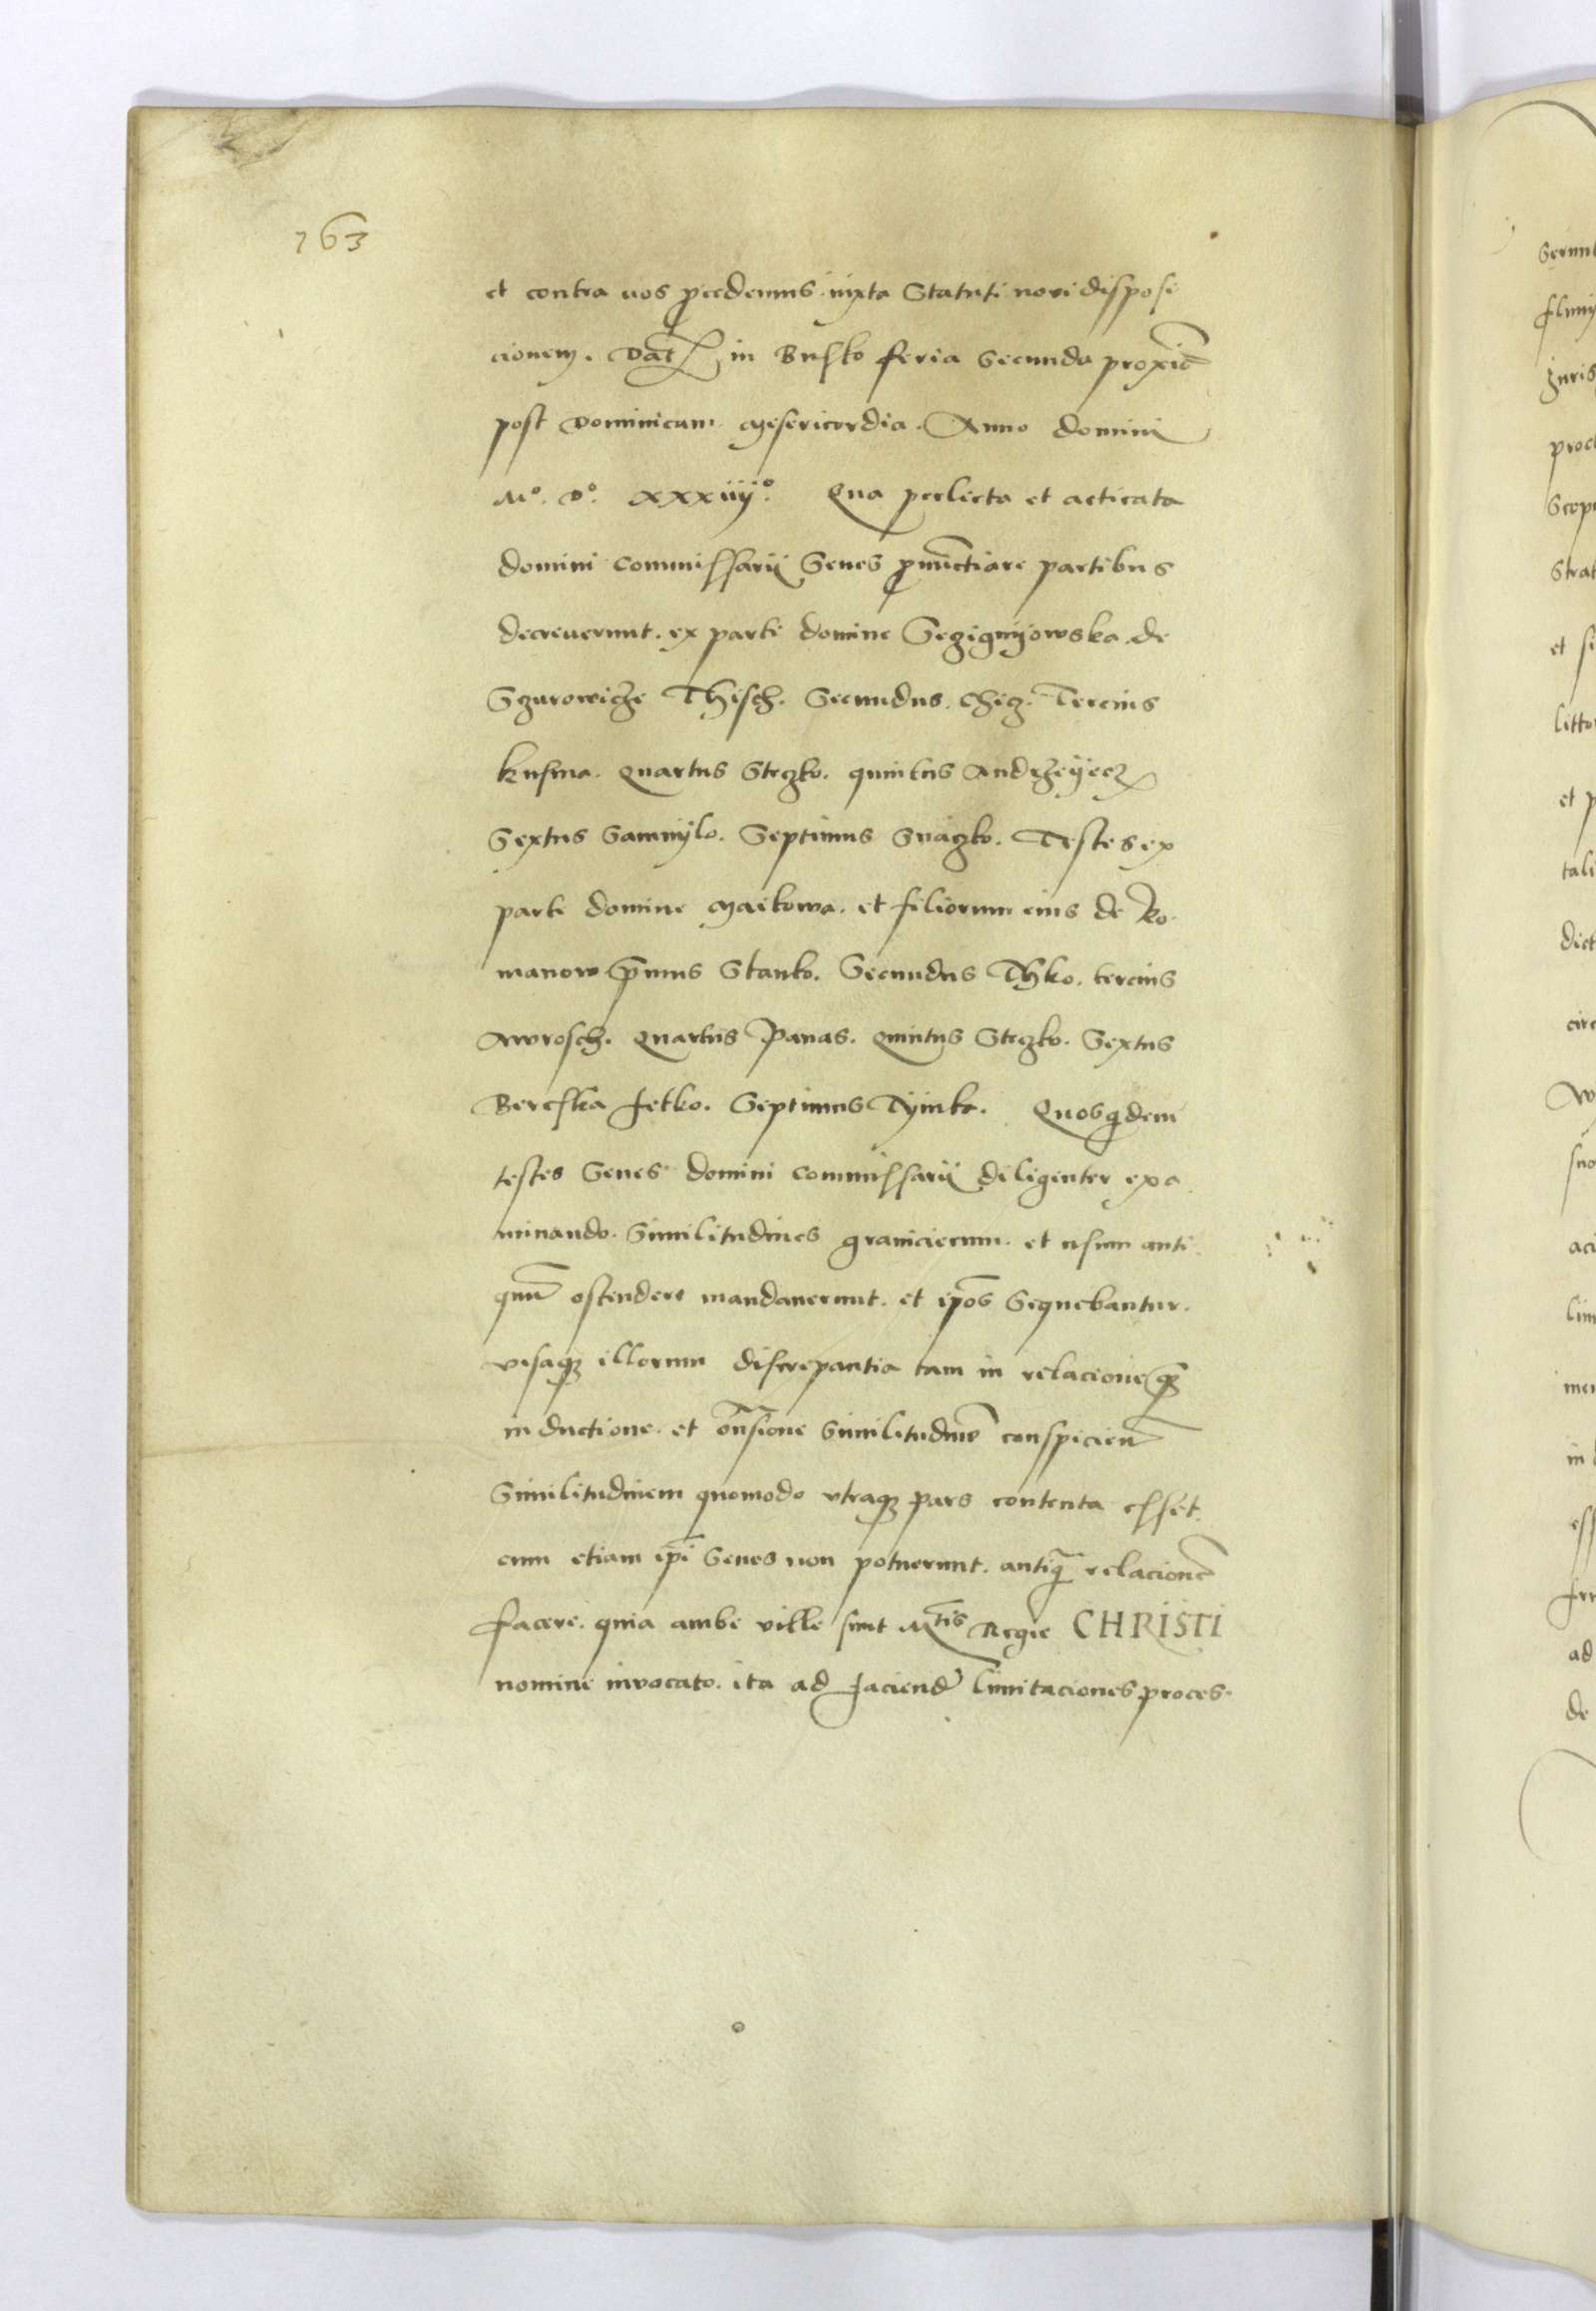 163
et contra uos p̱cedemus iuxta Statuti novi disposi
cionem. Dat̄ in Busko feria Secunda proxiē
post Dominicam Misericordia. Anno domini
Mº. Dº. xxxiiijº. Qua perlecta et acticata
domini Commissarij Senes p̱nūctiare partibus
decreverunt. ex parte domine Sezignijowska de
Szurowicze Thisch. Secundus. Chez. Tercius
Kusma. Quartus Steczko. quintus Andrzeyecz
Sextus Samuylo. Septimus Svaczko. Testes ex
parte domine Maikowa. et filiorum eius de Ro
manow P̄mus Stanko. Secundus Thko. tercius
Awrosch. Quartus Panas. Quintus Steczko. Sextus
Bereska Fetko. Septimus Tymko. Quosq̱dem
testes Senes domini Commissarij diligenter exa
minando. Similitudines graniciecrum. et usum anti
quū ostendere mandaverunt. et ip̄os Sequebantur.
visaq; illorum discrepantia tam in relacione q̄
in ductione. et oñsione Similitudinē conspicien̄
Similitudinem quomodo vtraq; pars contenta esset.
cum etiam ip̄i Senes non potuerunt. antiq̄ relacionē
facere. quia ambe ville sunt Mtis Regie CHRISTI
nomine invocato. ita ad faciend̄ limitaciones proces
Serunt
et si
et p
tali
ad
de